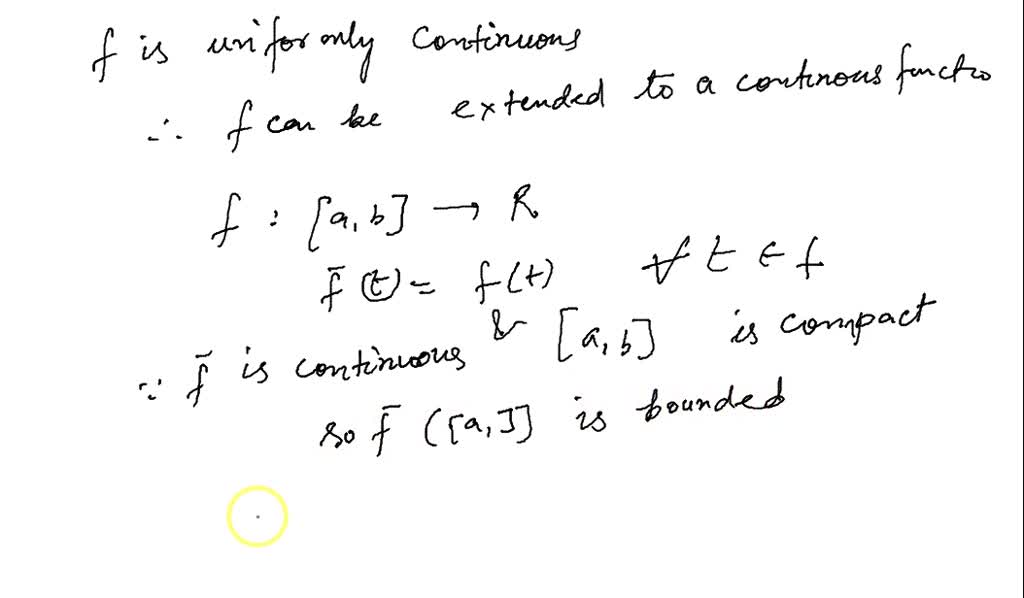 f is uniformly continuous
∴ f can be extended to a continous functio
f : [a, b] → R
f̄ (t) = f(t) ∀ t ∈ f
∵ f̄ is continuous & [a, b] is compact
so f̄ ([a, ]] is bounded